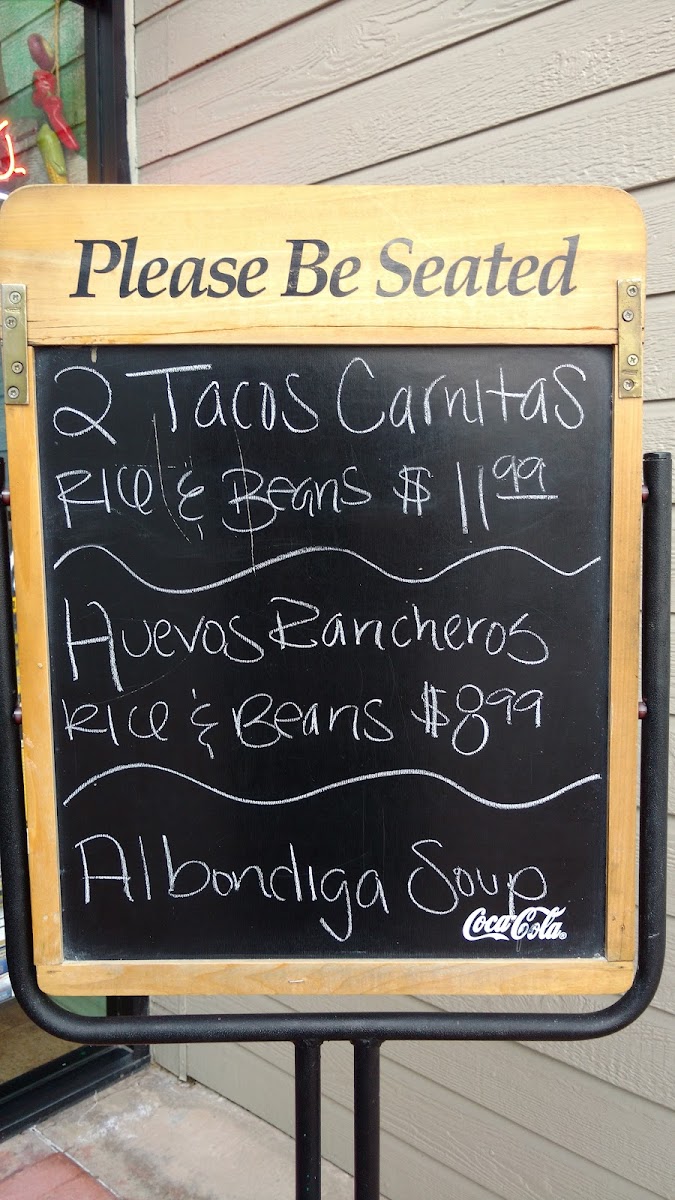 Please Be Seated
2 Tacos Carnitas
Rice & Beans $11.99
Huevos Rancheros
Rice & Beans $8.99
Albondiga Soup
Coca-Cola®